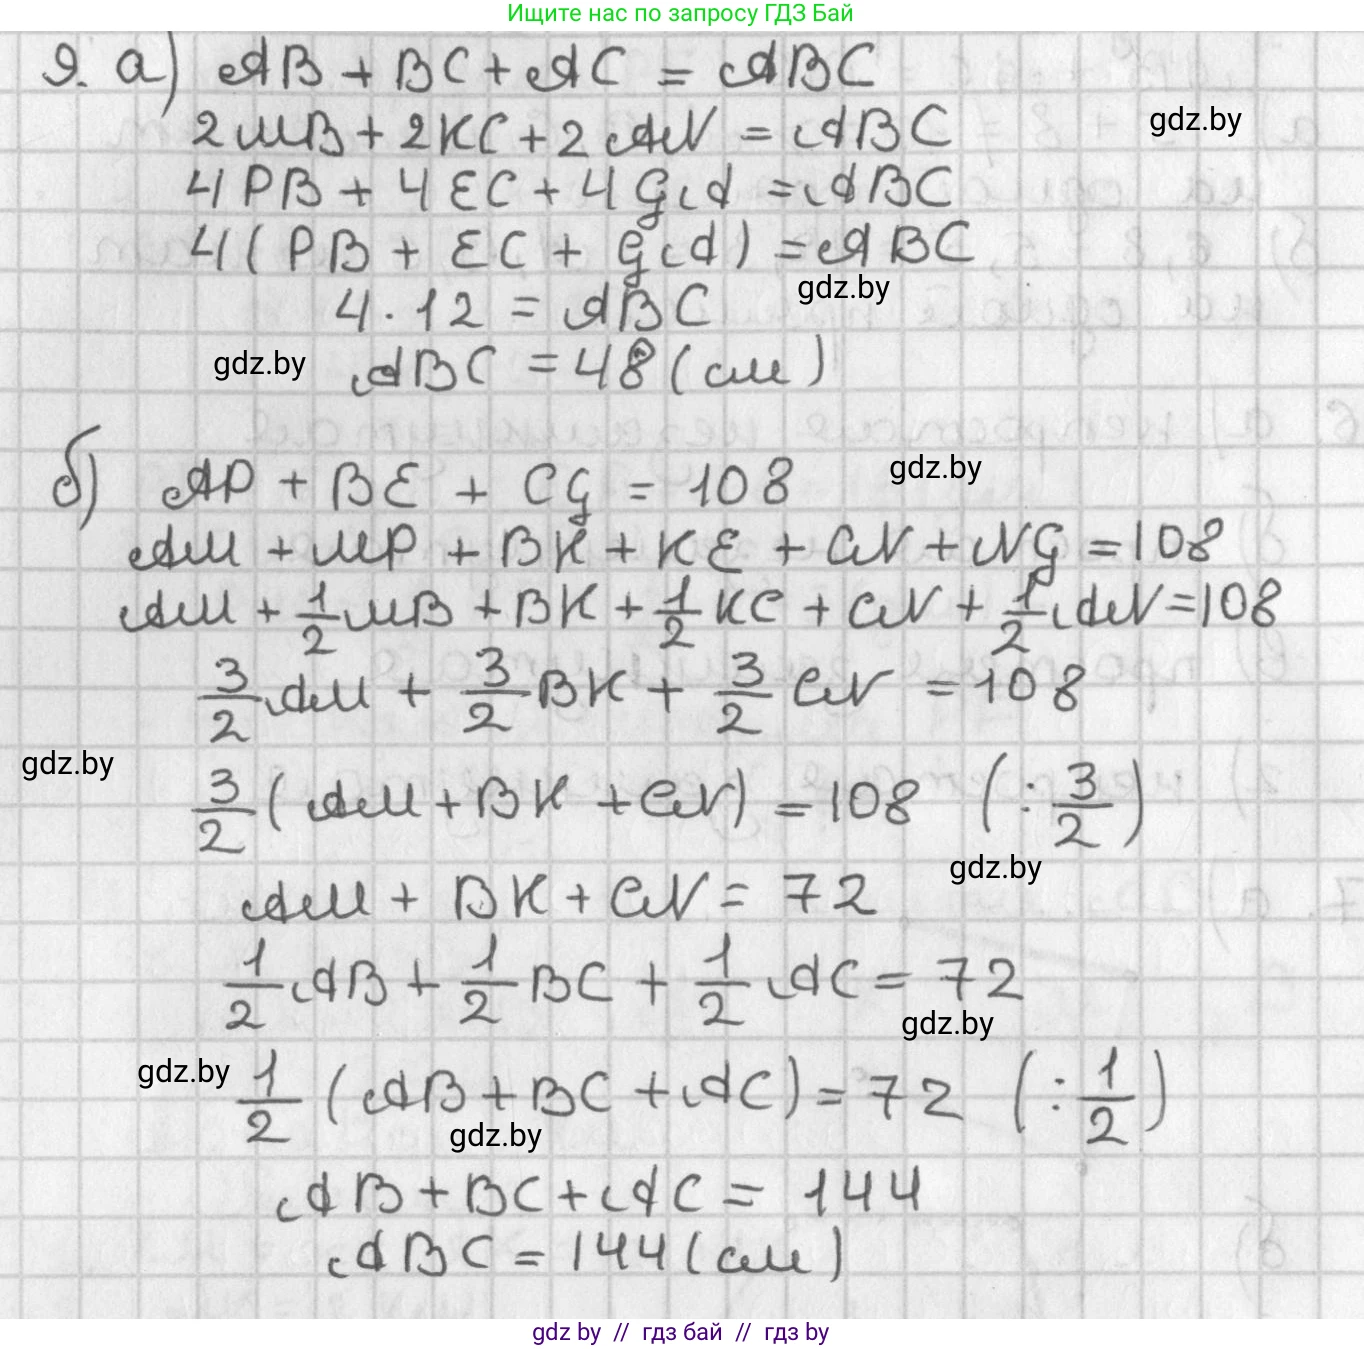 Ищите нас по запросу ГДЗ Бай
9. а) AB + BC + AC = ABC
gdz.by
2MB + 2KC + 2AN = ABC
4PB + 4EC + 4GA = ABC
4(PB + EC + GA) = ABC
gdz.by
4 · 12 = ABC
gdz.by
ABC = 48 (см)
gdz.by
б) AP + BE + CG = 108
AM + MP + BK + KE + CN + NG = 108
AM + 1/2 MB + BK + 1/2 KC + CN + 1/2 AN = 108
3/2 AM + 3/2 BK + 3/2 CN = 108
gdz.by
3/2 (AM + BK + CN) = 108 (: 3/2)
gdz.by
AM + BK + CN = 72
1/2 AB + 1/2 BC + 1/2 AC = 72
gdz.by
gdz.by
1/2 (AB + BC + AC) = 72 (: 1/2)
gdz.by
AB + BC + AC = 144
ABC = 144 (см)
gdz by // гдз бай // гдз by